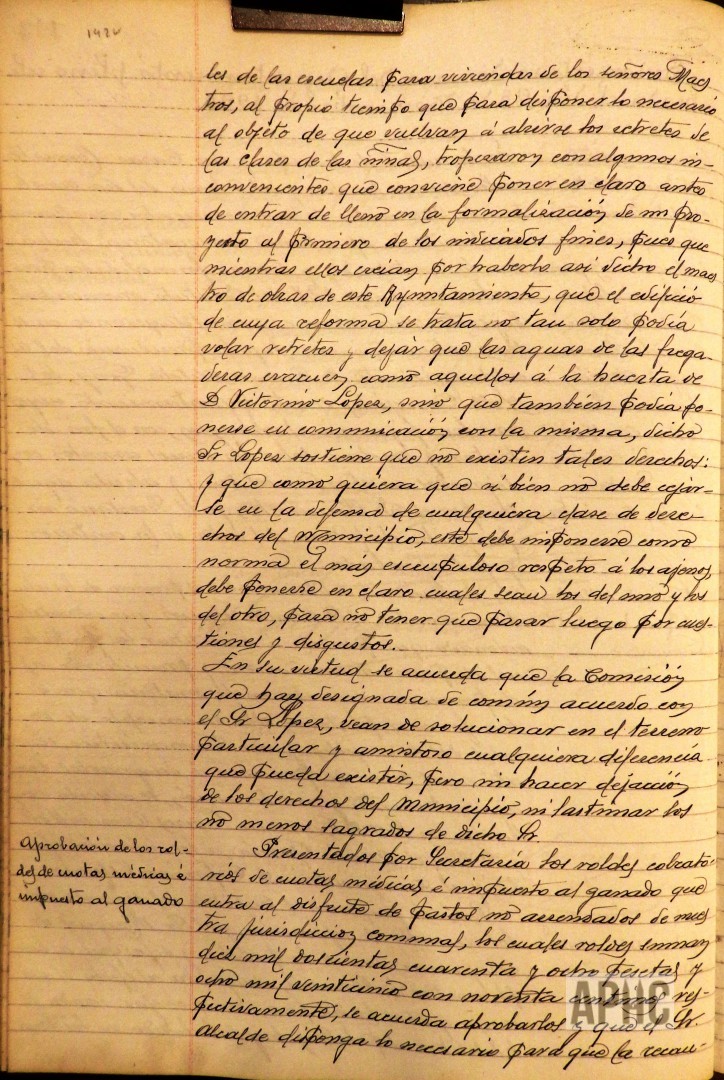 1920
les de las escuelas para viviendas de los señores Maes
tros, al propio tiempo que para disponer lo necesario
al objeto de que vuelvan á abrirse los retretes de
las clases de las niñas, tropezaron con algunos in-
convenientes que conviene poner en claro antes
de entrar de lleno en la formalización de un pro-
yecto al primero de los indicados fines, pues que
mientras ellos creian por haberlo asi dicho el maes
tro de obras de este Ayuntamiento, que el edificio
de cuya reforma se trata no tan solo podia
volar retretes y dejar que las aguas de las frega
deras evacuen como aquellos á la huerta de
D Victorino López, sino que también podia po-
nerse en comunicación con la misma, dicho
Sr Lopez sostiene que no existen tales derechos:
y que como quiera que si bien no debe cejar-
se en la defensa de cualquiera clase de dere-
chos del Municipio, este debe imponerse como
norma el más escrupuloso respeto á los ajenos,
debe ponerse en claro cuales sean los del uno y los
del otro, para no tener que pasar luego por cues-
tiones y disgustos.
En su virtud se acuerda que la Comisión
que hay designada de común acuerdo con
el Sr López, vean de solucionar en el terreno
particular y amistoso cualquiera diferencia
que pueda existir, pero sin hacer dejación
de los derechos del Municipio, ni lastimar los
no menos sagrados de dicho Sr.
Aprobación de los rol-
des de cuotas médicas é
impuesto al ganado
Presentados por Secretaria los roldes cobrato-
rios de cuotas médicas é impuesto al ganado que
entra al disfrute de pastos no arrendados de nues
tra jurisdiccion comunal, los cuales roldes suman
diez mil doscientas cuarenta y ocho pesetas y
ocho mil veinticinco con noventa centimos res-
pectivamente, se acuerda aprobarlos y que el Sr.
Alcalde disponga lo necesario para que la recau-
APHC